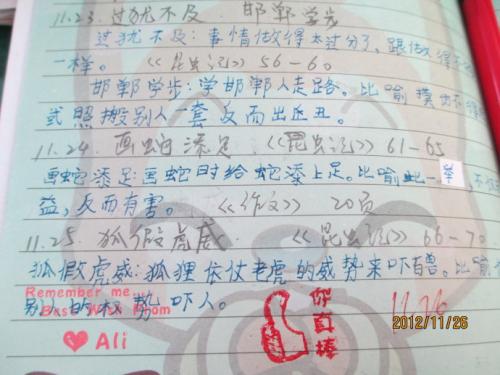 11.23. 过犹不及. 邯郸学步
过犹不及:事情做得太过分了,跟做得不
一样。 《昆虫记》56-60
邯郸学步:学邯郸人走路。比喻模仿不
或照搬别人一套反而出丑。
11.24. 画蛇添足 《昆虫记》61-65
画蛇添足:画蛇时给蛇添上足。比喻此一举,不
益,反而有害。 《作文》 20页
11.25. 狐假虎威 《昆虫记》66-70
狐假虎威:狐狸依仗老虎的威势来吓百兽。比喻
别人的权势吓人。
Remember me
Best Wish from
Ali
你真棒
11.26
2012/11/26